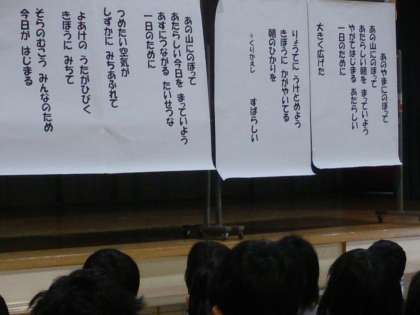 あのやまにのぼって
あの山にのぼって
あたらしい朝を まっていよう
やがてはじまる あたらしい
一日のために
大きく広げた
りょうてに うけとめよう
きぼうに かがやいてる
朝のひかりを
＊くりかえし すばらしい
あの山にのぼって
あたらしい今日を まっていよう
あすにつながる たいせつな
一日のために
つめたい空気が
しずかに みちあふれて
よあけの うたがひびく
きぼうに みちて
そらのむこう みんなのため
今日が はじまる